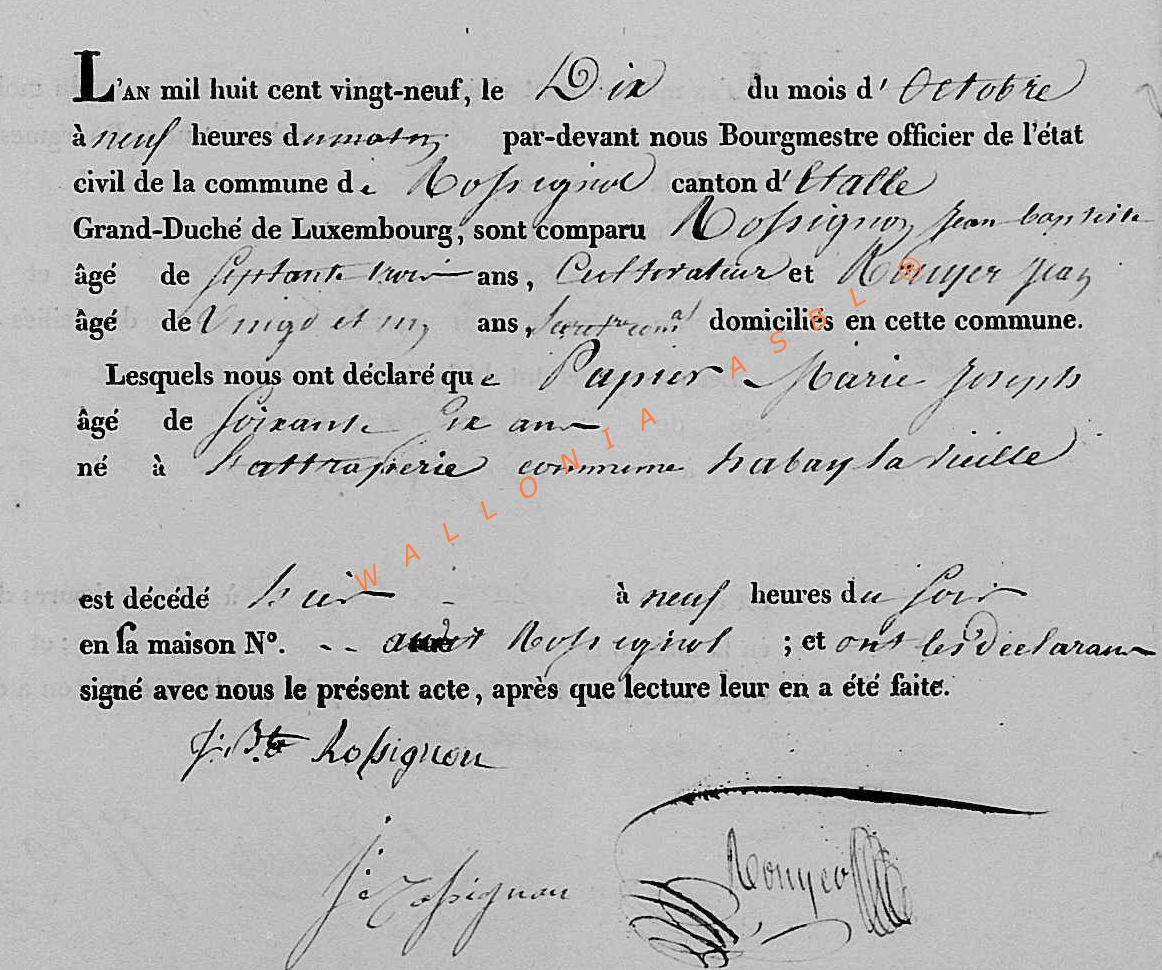 L'AN mil huit cent vingt-neuf, le Dix du mois d' Octobre
à neuf heures du matin par-devant nous Bourgmestre officier de l'état
civil de la commune de Rossignol canton d' Etalle
Grand-Duché de Luxembourg, sont comparu Rossignon Jean baptiste
âgé de septante trois ans, Cultivateur et Rouyer Jean
âgé de Vingt et un ans, domiciliés en cette commune.
Lesquels nous ont déclaré que Papier Marie Joseph
âgé de soixante Dix ans
né à commune habay la vieille
est décédé hier à neuf heures du soir
en sa maison N°. -- Rossignol ; et ont les déclarans
signé avec nous le présent acte, après que lecture leur en a été faite.
J. Bte Rossignon
Rossignon
Rouyer
WALLONIA ASBL ®